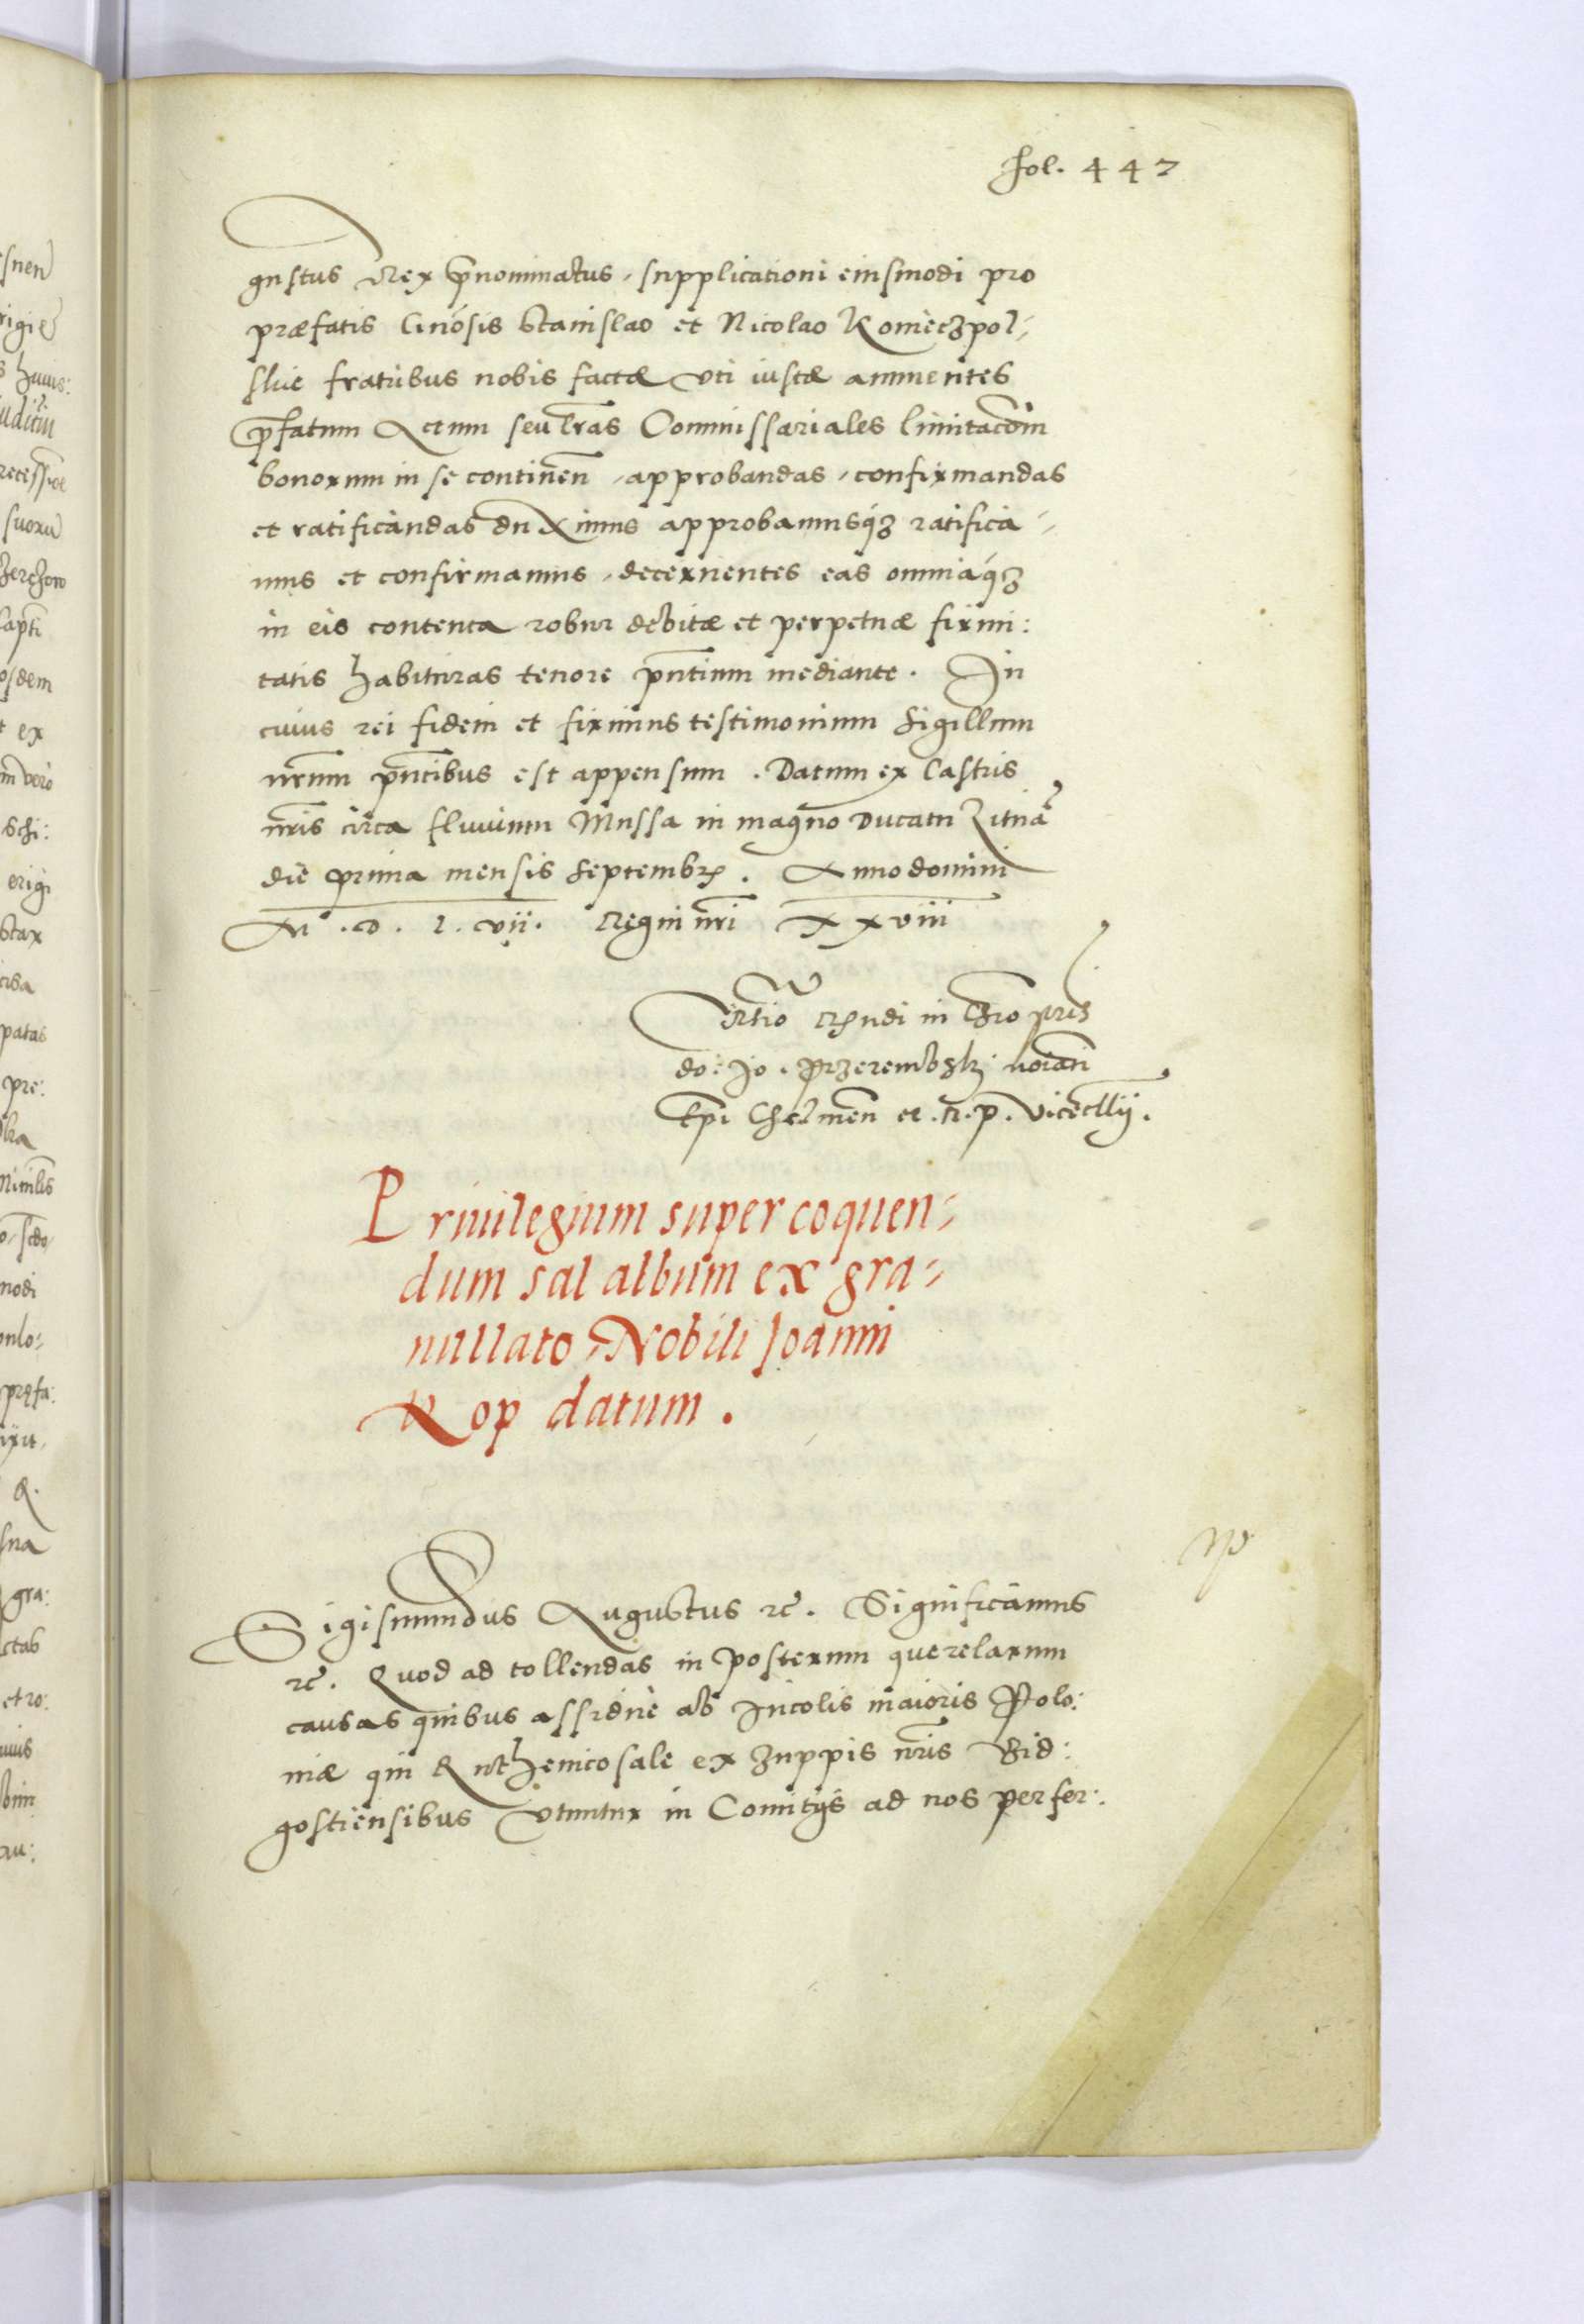 fol. 447
gustus Rex p̄nominatus, supplicationi eiusmodi pro
præfatis G̃n̄osis Stanislao et Nicolao Koniecżpol⸗
skie fratribus nobis factæ vti iustæ annuentes
p̄fatum Actum seu l̃ras Commissariales limitac̃om
bonorum in se continen̄, approbandas, confirmandas
et ratificandas duximus approbamusq́ꝫ ratifica⸗
mus et confirmamus, decernentes eas omniaq́ꝫ
in eis contenta robur debitæ et perpetuæ firmi:
tatis habituras tenore p̄ntium mediante. In
cuius rei fidem et firmius testimonium Sigillum
nr̄um p̄ntibus est appensum. Datum ex Castris
nr̄is circa fluuium Mussa in magno Ducatu Litua᷉
die prima mensis Septembrꝭ. Anno domini
M. D. L. vii. Regni nr̄i xxviii
Rel̃tio Rn̄di in Chr̃o pr̃is
do: Jo. Przerembskj noīati
Ep̄i Chelmen̄ et .R.P. Vicecllīj.
Priuilegium super coquen⸗
dum sal album ex gra⸗
nullato, Nobili Joanni
Kop datum.
Sigismundus Augustus ꝛc̄. Significamus
ꝛc̄. Quod ad tollendas in posterum querelarum
causas quibus assidue ab Incolis maioris Polo:
niæ qui Ruthenico sale ex zuppis nr̄is Bid:
gostiensibus vtuntur in Comitijs ad nos perfer: